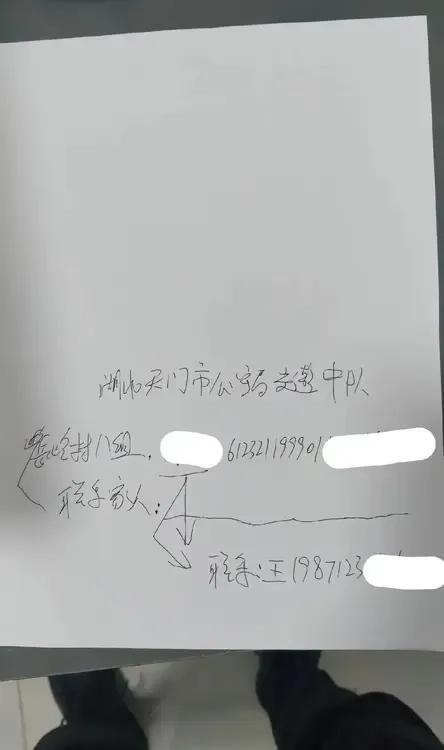 湖北天门市公安局交警中队
村八组, 612321199901
联系家人:
联系:王1987123